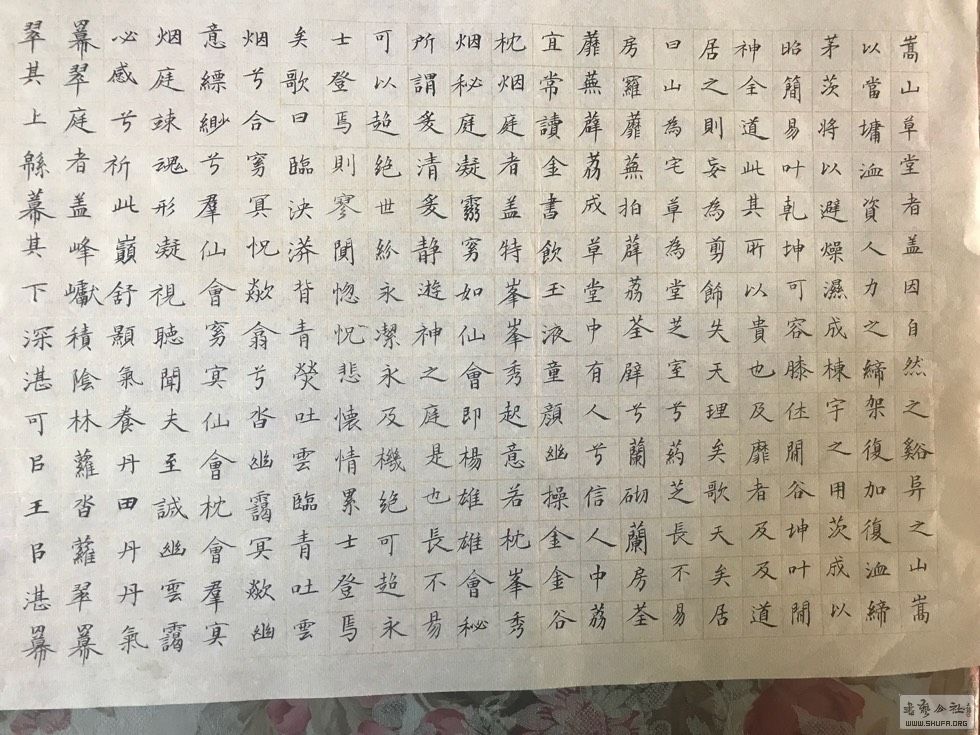 嵩山草堂者盖因自然之谿阜之山嵩
以當墉洫資人力之締架復加復洫締
茅茨将以避燥濕成棟宇之用茨成以
昭簡易叶乾坤可容膝休閒谷坤叶閒
神全道此其所以貴也及靡者及及道
居之則妄為剪飾失天理矣歌天矣居
曰山為宅草為堂芝室兮葯芝長不易
房羅蘼蕪拍薜荔荃壁兮蘭砌蘭房荃
蘼蕪薜荔成草堂中有人兮信人中荔
宜常讀金書飲玉液童顏幽操金金谷
枕烟庭者盖特峯峯秀起意若枕峯秀
烟秘庭凝霛窅如仙會即楊雄雄會秘
所謂爰清爰静遊神之庭是也長不易
可以超絶世紛永潔永及機絶可超永
士登焉則寥閴惚怳悲懷情累士登焉
矣歌曰臨泱漭背青熒吐雲臨青吐雲
烟兮合窅冥怳欻翕兮沓幽靄冥欻幽
意縹緲兮羣仙會窅冥仙會枕會羣冥
烟庭竦魂形凝視聽聞夫至誠幽雲靄
必感兮祈此巔舒顥氣養丹田丹丹氣
羃翠庭者盖峰巘積陰林蘿沓蘿翠羃
翠其上緜羃其下深湛可㠯王㠯湛羃
WWW.SHUFA.ORG